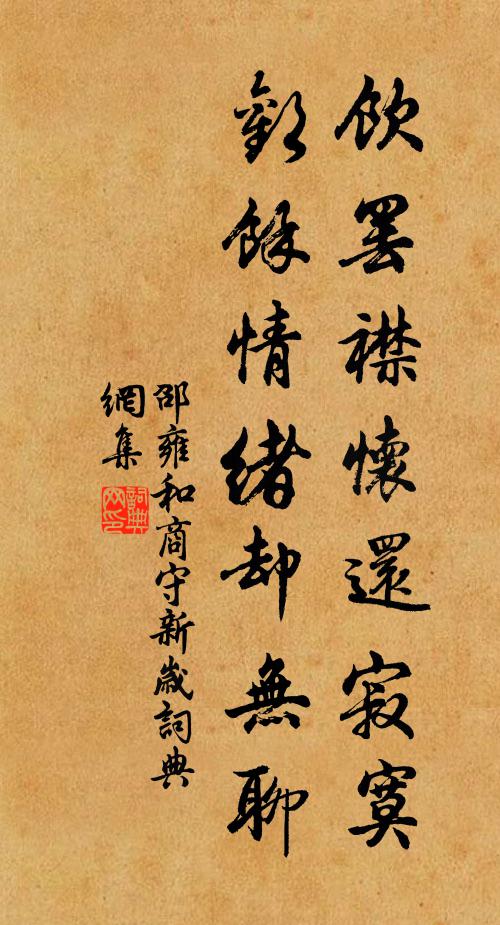 飲罷襟懷還寂寞
歡餘情緒却無聊
邵雍和商守新歲詞典
網集
詞典
网印